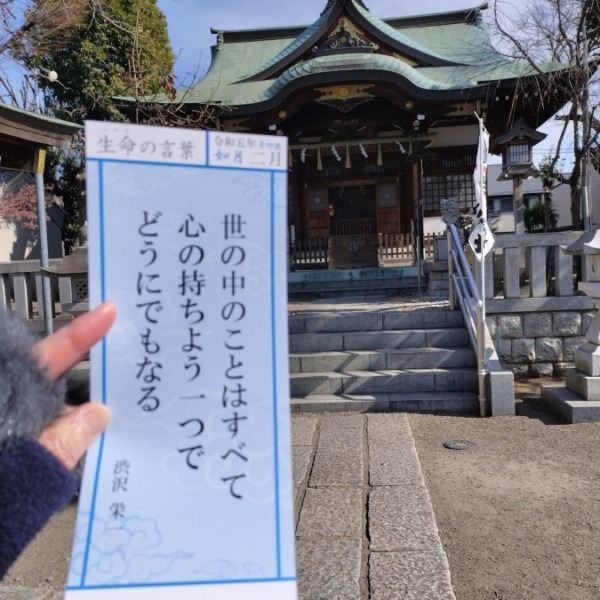 生命の言葉
令和五年
如月 二月
世の中のことはすべて
心の持ちよう一つで
どうにでもなる
渋沢 栄一